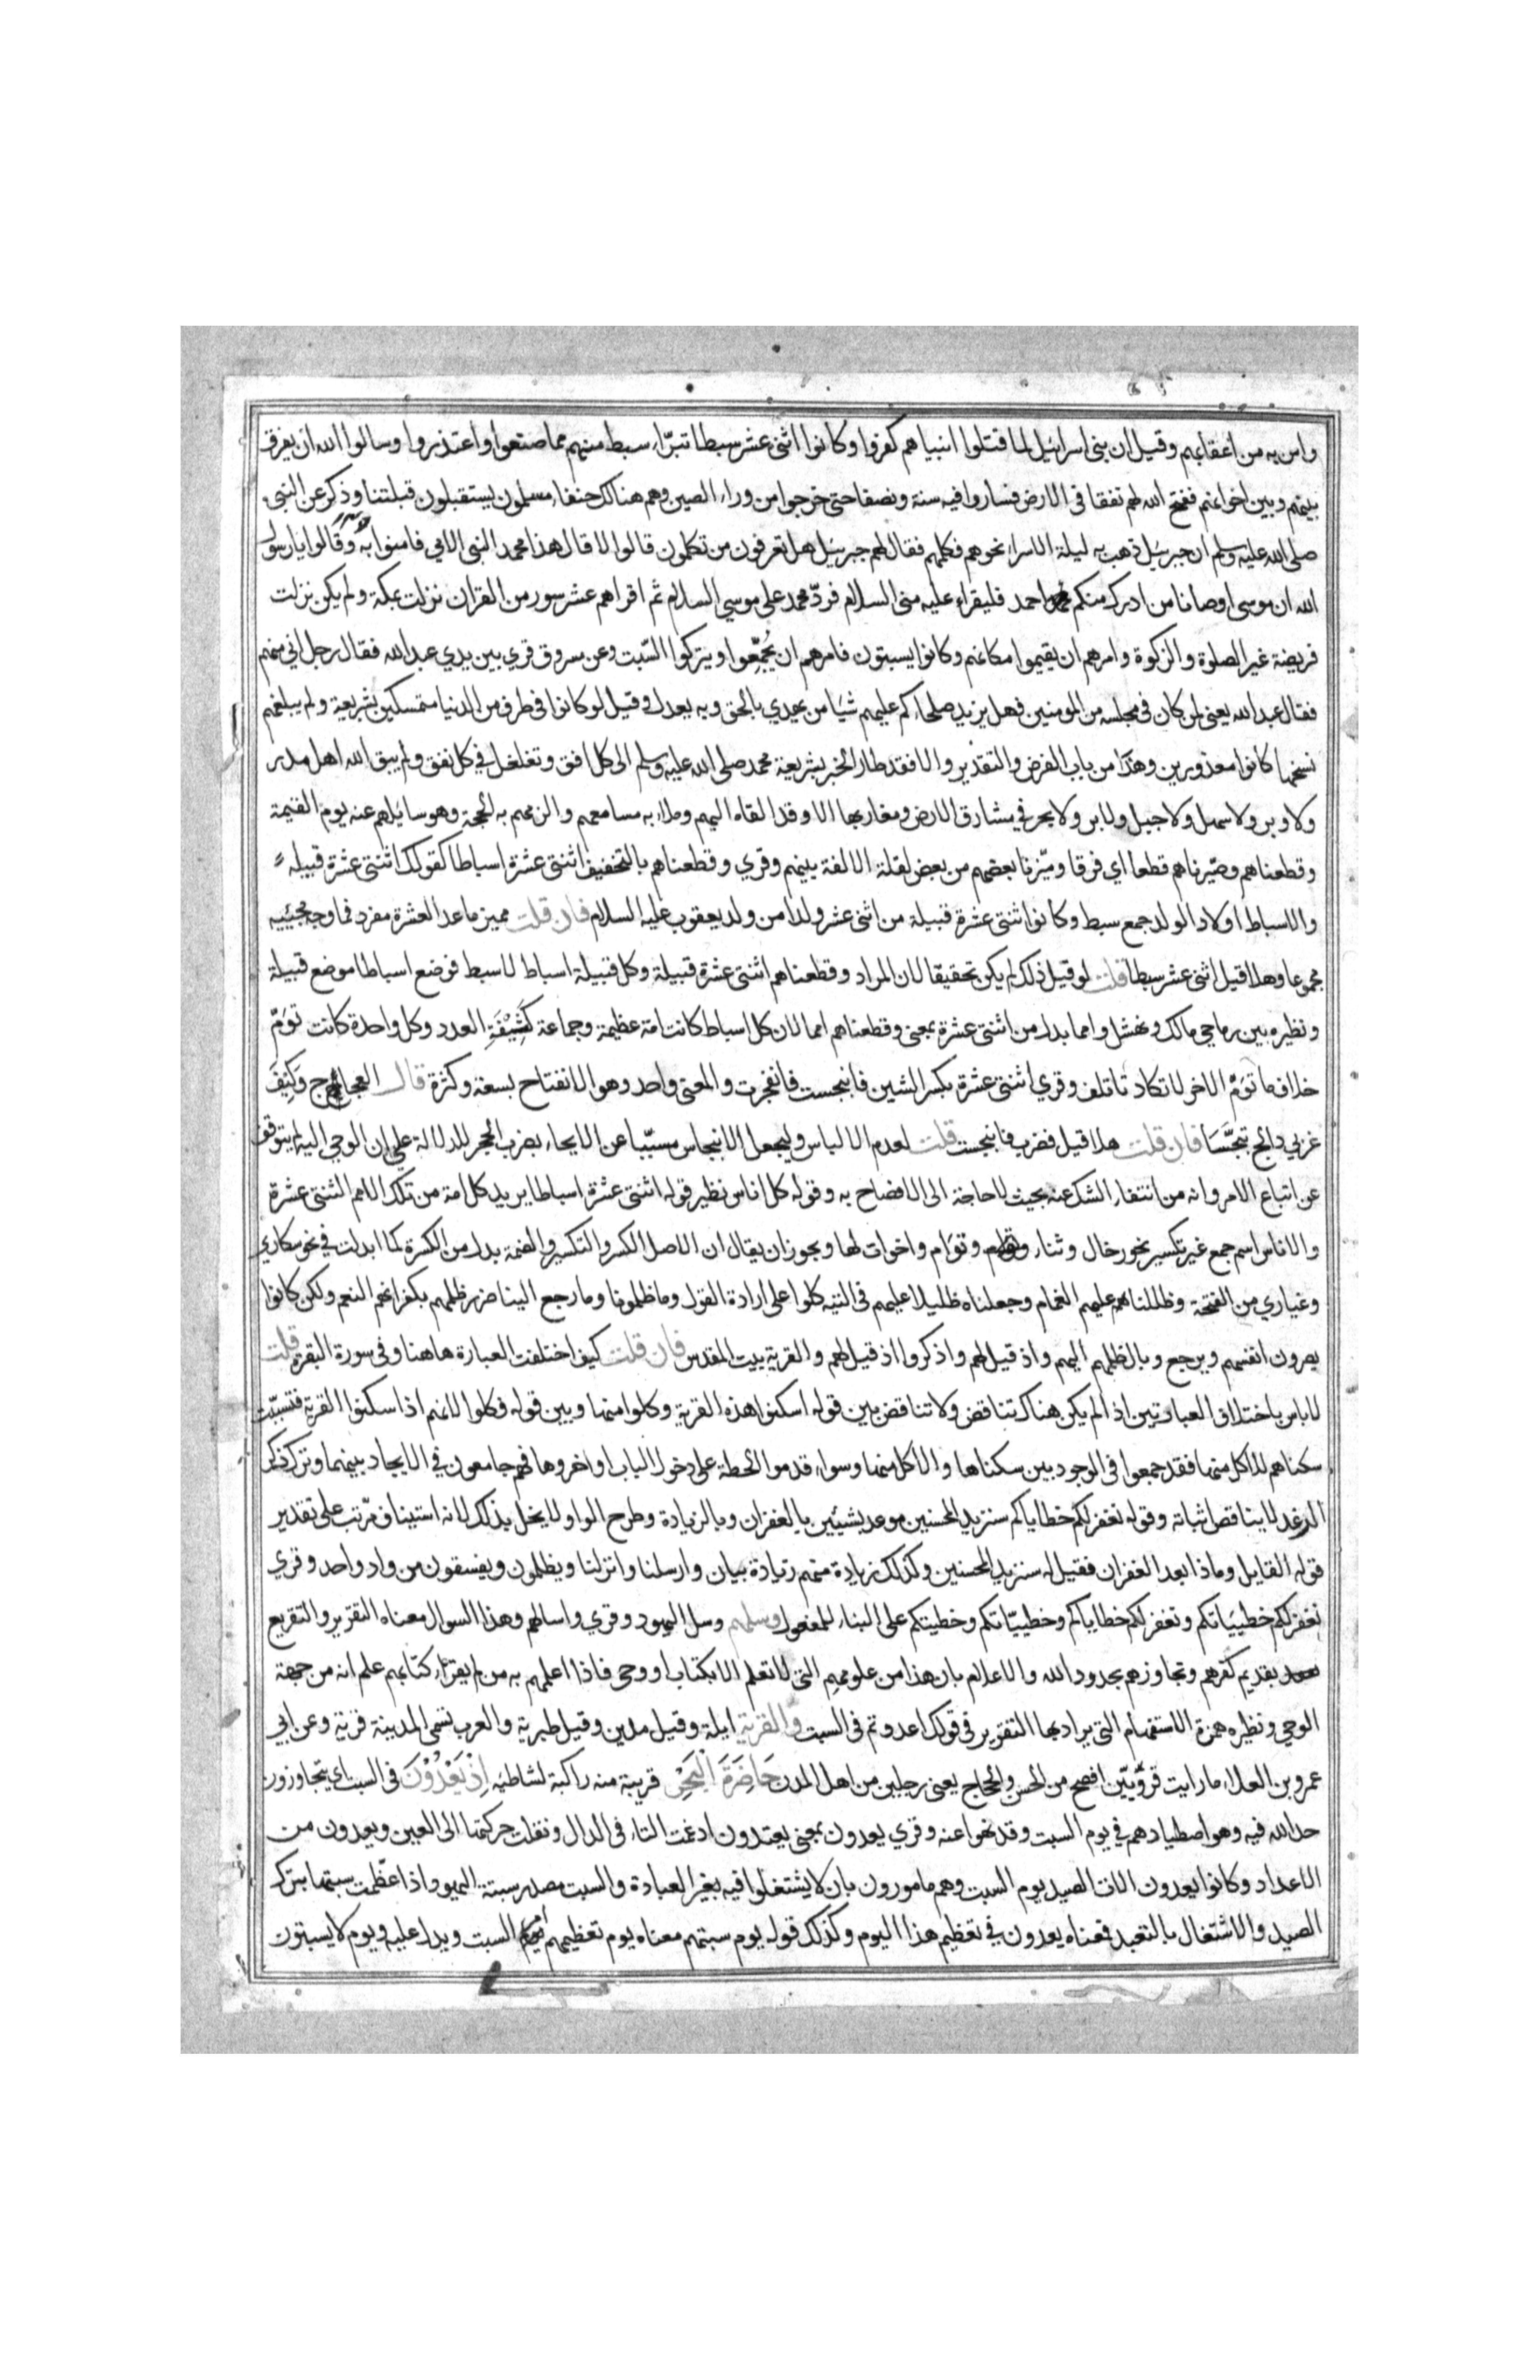 وامن به من اعقابهم وقيل ان بني اسرائيل لما قتلوا انبياهم كفروا وكانوا اثني عشر سبطا تبرّاء سبط منهم مما صنعوا واعتذروا وسالوا الله ان يفرق
بينهم وبين اخوانهم ففتح الله لهم نفقا في الارض فساروا فيه سنة ونصفا حتى خرجوا من وراء الصين وهم هنالك حنفاء مسلمون يستقبلون قبلتنا وذكر عن النبي
صلى الله عليه وسلم ان جبرئيل ذهب به ليلة الاسراء نحوهم فكلمهم فقال لهم جبرئيل هل تعرفون من تكلمون قالوا لا قال هذا محمد النبي الامي فامنوا به وقالوا يا رسول
الله ان موسى اوصانا من ادرك منكم احمد فليقراء عليه مني السلام فردّ محمد على موسي السلام ثم اقراهم عشر سور من القران نزلت بمكة ولم يكن نزلت
فريضة غير الصلوة والزكوة وامرهم ان يقيموا مكانهم وكانوا يسبتون فامرهم ان يُجمِّعوا ويتركوا السّبت وعن مسروق قري بين يدي عبد الله فقال رجل اني منهم
فقال عبد الله يعني لمن كان في مجلسه من المومنين فهل يزيد صلحاءكم عليهم شيا من يهدي بالحق وبه يعدل وقيل لو كانوا في طرف من الدنيا متمسكين بشريعة ولم يبلغهم
نسخها كانوا معذورين وهذا من باب الفرض والتقدير والا فقد طار الخبر بشريعة محمد صلى الله عليه وسلم الى كل افق وتغلغل في كل نفق ولم يبق الله اهل مدر
ولا وبر ولا سهل ولا جبل ولا بر ولا بحر في مشارق الارض ومغاربها الا وقد القاه اليهم وملاء به مسامعهم والزمهم به الحجة وهو سايلهم عنه يوم القيمة
وقطعناهم وصيّرناهم قطعا اي فرقا وميّزنا بعضهم من بعض لقلة الالفة بينهم وقري وقطعناهم بالتخفيف اثنتي عشرة اسباطا كقولك اثنتي عشرة قبيلة
والاسباط اولاد الولد جمع سبط وكانوا اثنتي عشرة قبيلة من اثني عشر ولدا من ولد يعقوب عليه السلام فان قلت مميز ما عدا العشرة مفرد فما وجه مجيئه
مجموعا وهلا قيل اثني عشر سبطا قلت لو قيل ذلك لم يكن تحقيقا لان المراد وقطعناهم اثنتي عشرة قبيلة وكل قبيلة اسباط لا سبط فوضع اسباطا موضع قبيلة
ونظيره بين رماحي مالك ونهشل وامما بدل من اثنتي عشرة بمعنى وقطعناهم امما لان كل اسباط كانت امة عظيمة وجماعة كَثِيْفَةِ العدد وكل واحدة كانت تؤمّ
خلاف ما تؤمّ الاخر لا تكاد تاتلف وقري اثنتي عشرة بكسر الشين فانبجست فانفجرت والمعنى واحد وهو الانفتاح بسعة وكثرة قال العجاج وَكِيفَ
غربي دالج تبجّسَا فان قلت هلا قيل فضرب فانبجست قلت لعدم الالباس وليجعل الانبجاس مسبّبا عن الايحاء بضرب الحجر للدلالة على ان الوحي اليه لم يتوقف
عن اتباع الامر وانه من انتفاء الشك عنه بحيث لا حاجة الى الافصاح به وقوله كل اناس نظير قوله اثنتي عشرة اسباطا يريد كل امة من تلك الامم الثنتي عشرة
والاناس اسم جمع غير تكسير نحو رخال وثناء وتؤام واخوات لها ويجوز ان يقال ان الاصل الكسر والتكسير والضمة بدل من الكسرة كما ابدلت في نحو سكاري
وغياري من الفتحة وظللنا عليهم الغمام وجعلناه ظليلا عليهم في التيه كلوا على ارادة القول وما ظلمونا وما رجع الينا ضرر ظلمهم بكفرانهم النعم ولكن كانوا
يضرون انفسهم ويرجع وبال ظلمهم اليهم واذ قيل لهم واذكروا اذ قيل لهم والقرية بيت المقدس فان قلت كيف اختلفت العبارة هاهنا وفي سورة البقرة قلت
لا باس باختلاف العبارتين اذا لم يكن هناك تناقض ولا تناقض بين قوله اسكنوا هذه القرية وكلوا منها وبين قوله فكلوا لانهم اذا سكنوا القرية فتسبّبت
سكناهم للاكل منها فقد جمعوا في الوجود بين سكناها والاكل منها وسواء قدموا الحطة على دخول الباب او اخروها فهم جامعون في الايجاد بينهما وترك ذكر
الرغد لا يناقض اثباته وقوله نغفر لكم خطاياكم سنزيد المحسنين موعد بشيئين بالغفران وبالزيادة وطرح الواو لا يخل بذلك لانه استيناف مرّتب على تقدير
قول القايل وماذا بعد الغفران فقيل له سنزيد المحسنين وكذلك زيادة منهم زيادة بيان وارسلنا وانزلنا ويظلمون ويفسقون من واد واحد وقري
نغفر لكم خطيئاتكم وتغفر لكم خطاياكم وخطيئاتكم وخطيئتكم على البناء للمفعول وسلهم وسل اليهود وقري واسالهم وهذا السوال معناه التقرير والتقريع
بقديم كفرهم وتجاوزهم بحدود الله والاعلام بان هذا من علومهم التي لا تعلم الا بكتاب او وحي فاذا اعلمهم به من لم يقراء كتابهم علم انه من جهة
الوحي ونظيره همزة الاستفهام التي يراد بها التقرير في قولك اعدوتم في السبت والقرية ايلة وقيل مدين وقيل طبرية والعرب تسمي المدينة قرية وعن ابي
عمرو بن العلاء ما رايت قرويّين افصح من الحسن والحجاج يعني رجلين من اهل المدن حَاضِرَةَ الْبَحْرِ قريبة منه راكبة لشاطئه اِذْ يَعْدُوْنَ في السبت اي يتجاوزون
حد الله فيه وهو اصطيادهم في يوم السبت وقد نهوا عنه وقري يعدون بمعنى يعتدون ادغمت التاء في الدال ونقلت حركتها الى العين ويعدون من
الاعداد وكانوا يعدون الات الصيد يوم السبت وهم مامورون بان لا يشتغلوا فيه بغير العبادة والسبت مصدر سبتة اليهود اذا عظمت سبتها بترك
الصيد والاشتغال بالتعبد فمعناه يعدون في تعظيم هذا اليوم وكذلك قوله يوم سبتهم معناه يوم تعظيمهم امر السبت ويدل عليه ويوم لا يسبتون